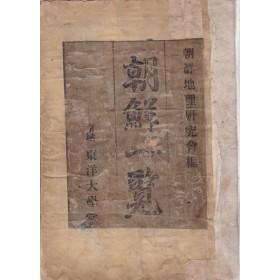 朝鮮地理研究會編
朝鮮一覽
東洋大學堂